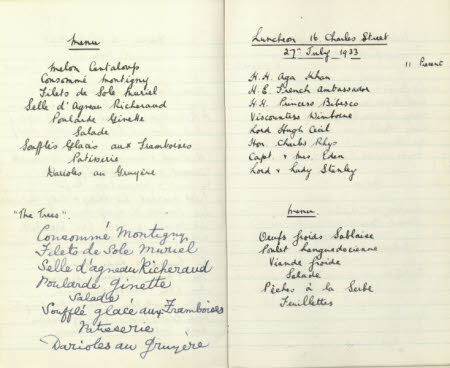 Menu
Melon Cantaloup
Consommé Montigny
Filets de Sole Muriel
Selle d'Agneau Richeraud
Poularde Ginette
Salade
Soufflés Glacés aux Framboises
Patisserie
Darioles au Gruyère
"The Trees".
Consommé Montigny
Filets de Sole Muriel
Selle d'agneau Richeraud
Poularde Ginette
Salade
Soufflé glacé aux Framboises
Patisserie
Darioles au gruyère
Luncheon 16 Charles Street
27th July 1933
11 Present
H.H. Aga Khan
H.E. French Ambassador
H.H. Princess Bibesco
Viscountess Wimborne
Lord Hugh Cecil
Hon. Charles Rhys
Capt. & Mrs. Eden
Lord & Lady Stanley
Menu.
Oeufs froids Sablaise
Poulet Languedocienne
Viande froide
Salade
Pêches à la
Feuillettes